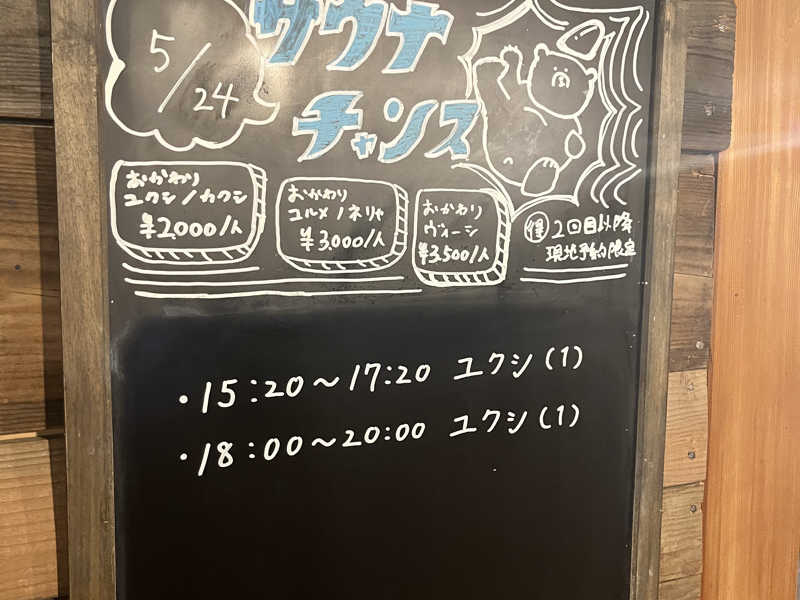 5/24
サウナ
チャンス
おかわり
ユクシ/カクシ
¥2,000/人
おかわり
コルメ/ネリャ
¥3,000/人
おかわり
ヴォーシ
¥3,500/人
得 2回目以降
現地予約限定
・15:20〜17:20 ユクシ(1)
・18:00〜20:00 ユクシ(1)